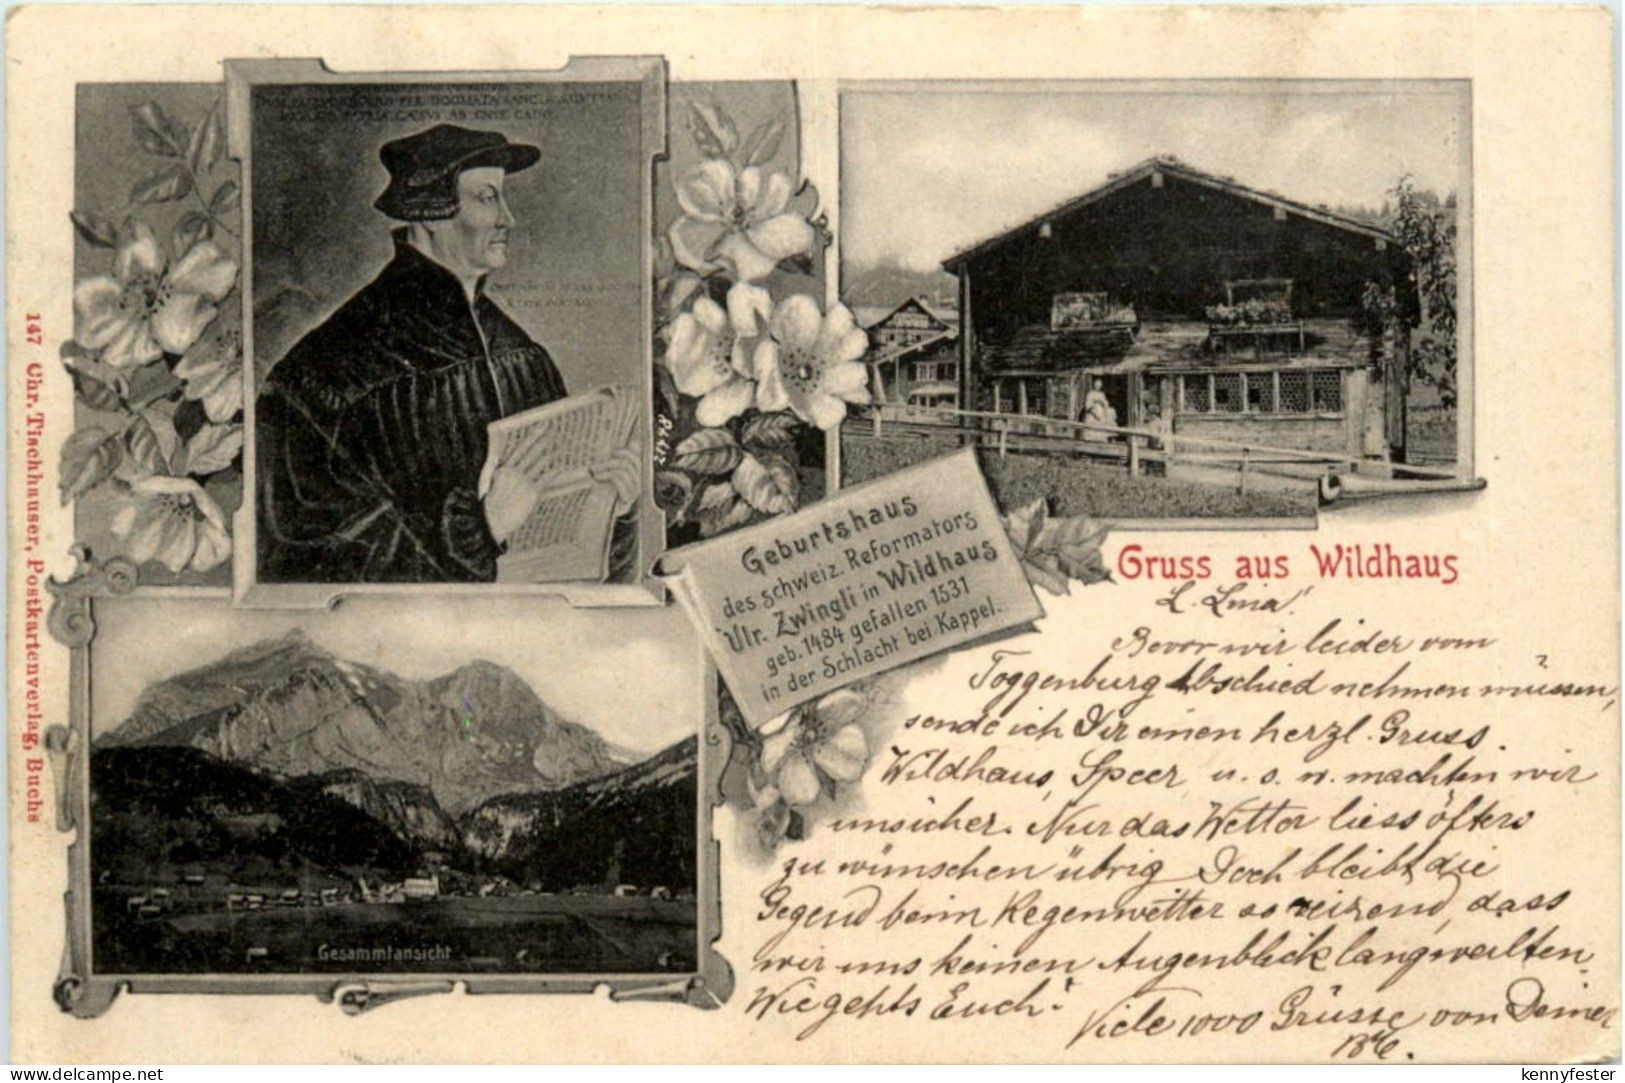 DOGMATA SANCTA
PATRIA CAESVS AB ENSE CADIT
147 Chr. Tischhauser, Postkartenverlag, Buchs
Geburtshaus
des schweiz. Reformators
Ulr. Zwingli in Wildhaus
geb. 1484 gefallen 1531
in der Schlacht bei Kappel.
Gesammtansicht
Gruss aus Wildhaus
Bevor wir leider vom
Toggenburg Abschied nehmen müssen,
sende ich Dir einen herzl. Gruss.
Wildhaus, Speer, u. s. w. machten wir
unsicher. Nur das Wetter liess öfters
zu wünschen übrig. Doch bleibt die
Gegend beim Regenwetter so reizend, dass
wir uns keinen Augenblick langweilten.
Wie gehts Euch?
Viele 1000 Grüsse von Deiner
www.delcampe.net
kennyfester